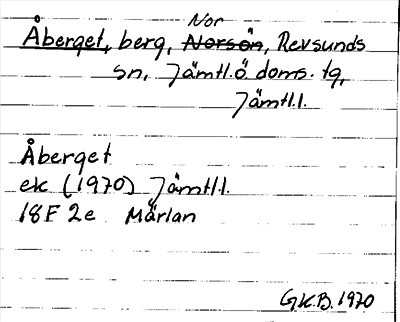 Nor
Åberget, berg, Norsön, Revsunds
sn, Jämtl. ö doms. tg,
Jämtl.l.
Åberget
ek (1970) Jämtl.l.
18F 2e Märlan
G.K.B. 1970